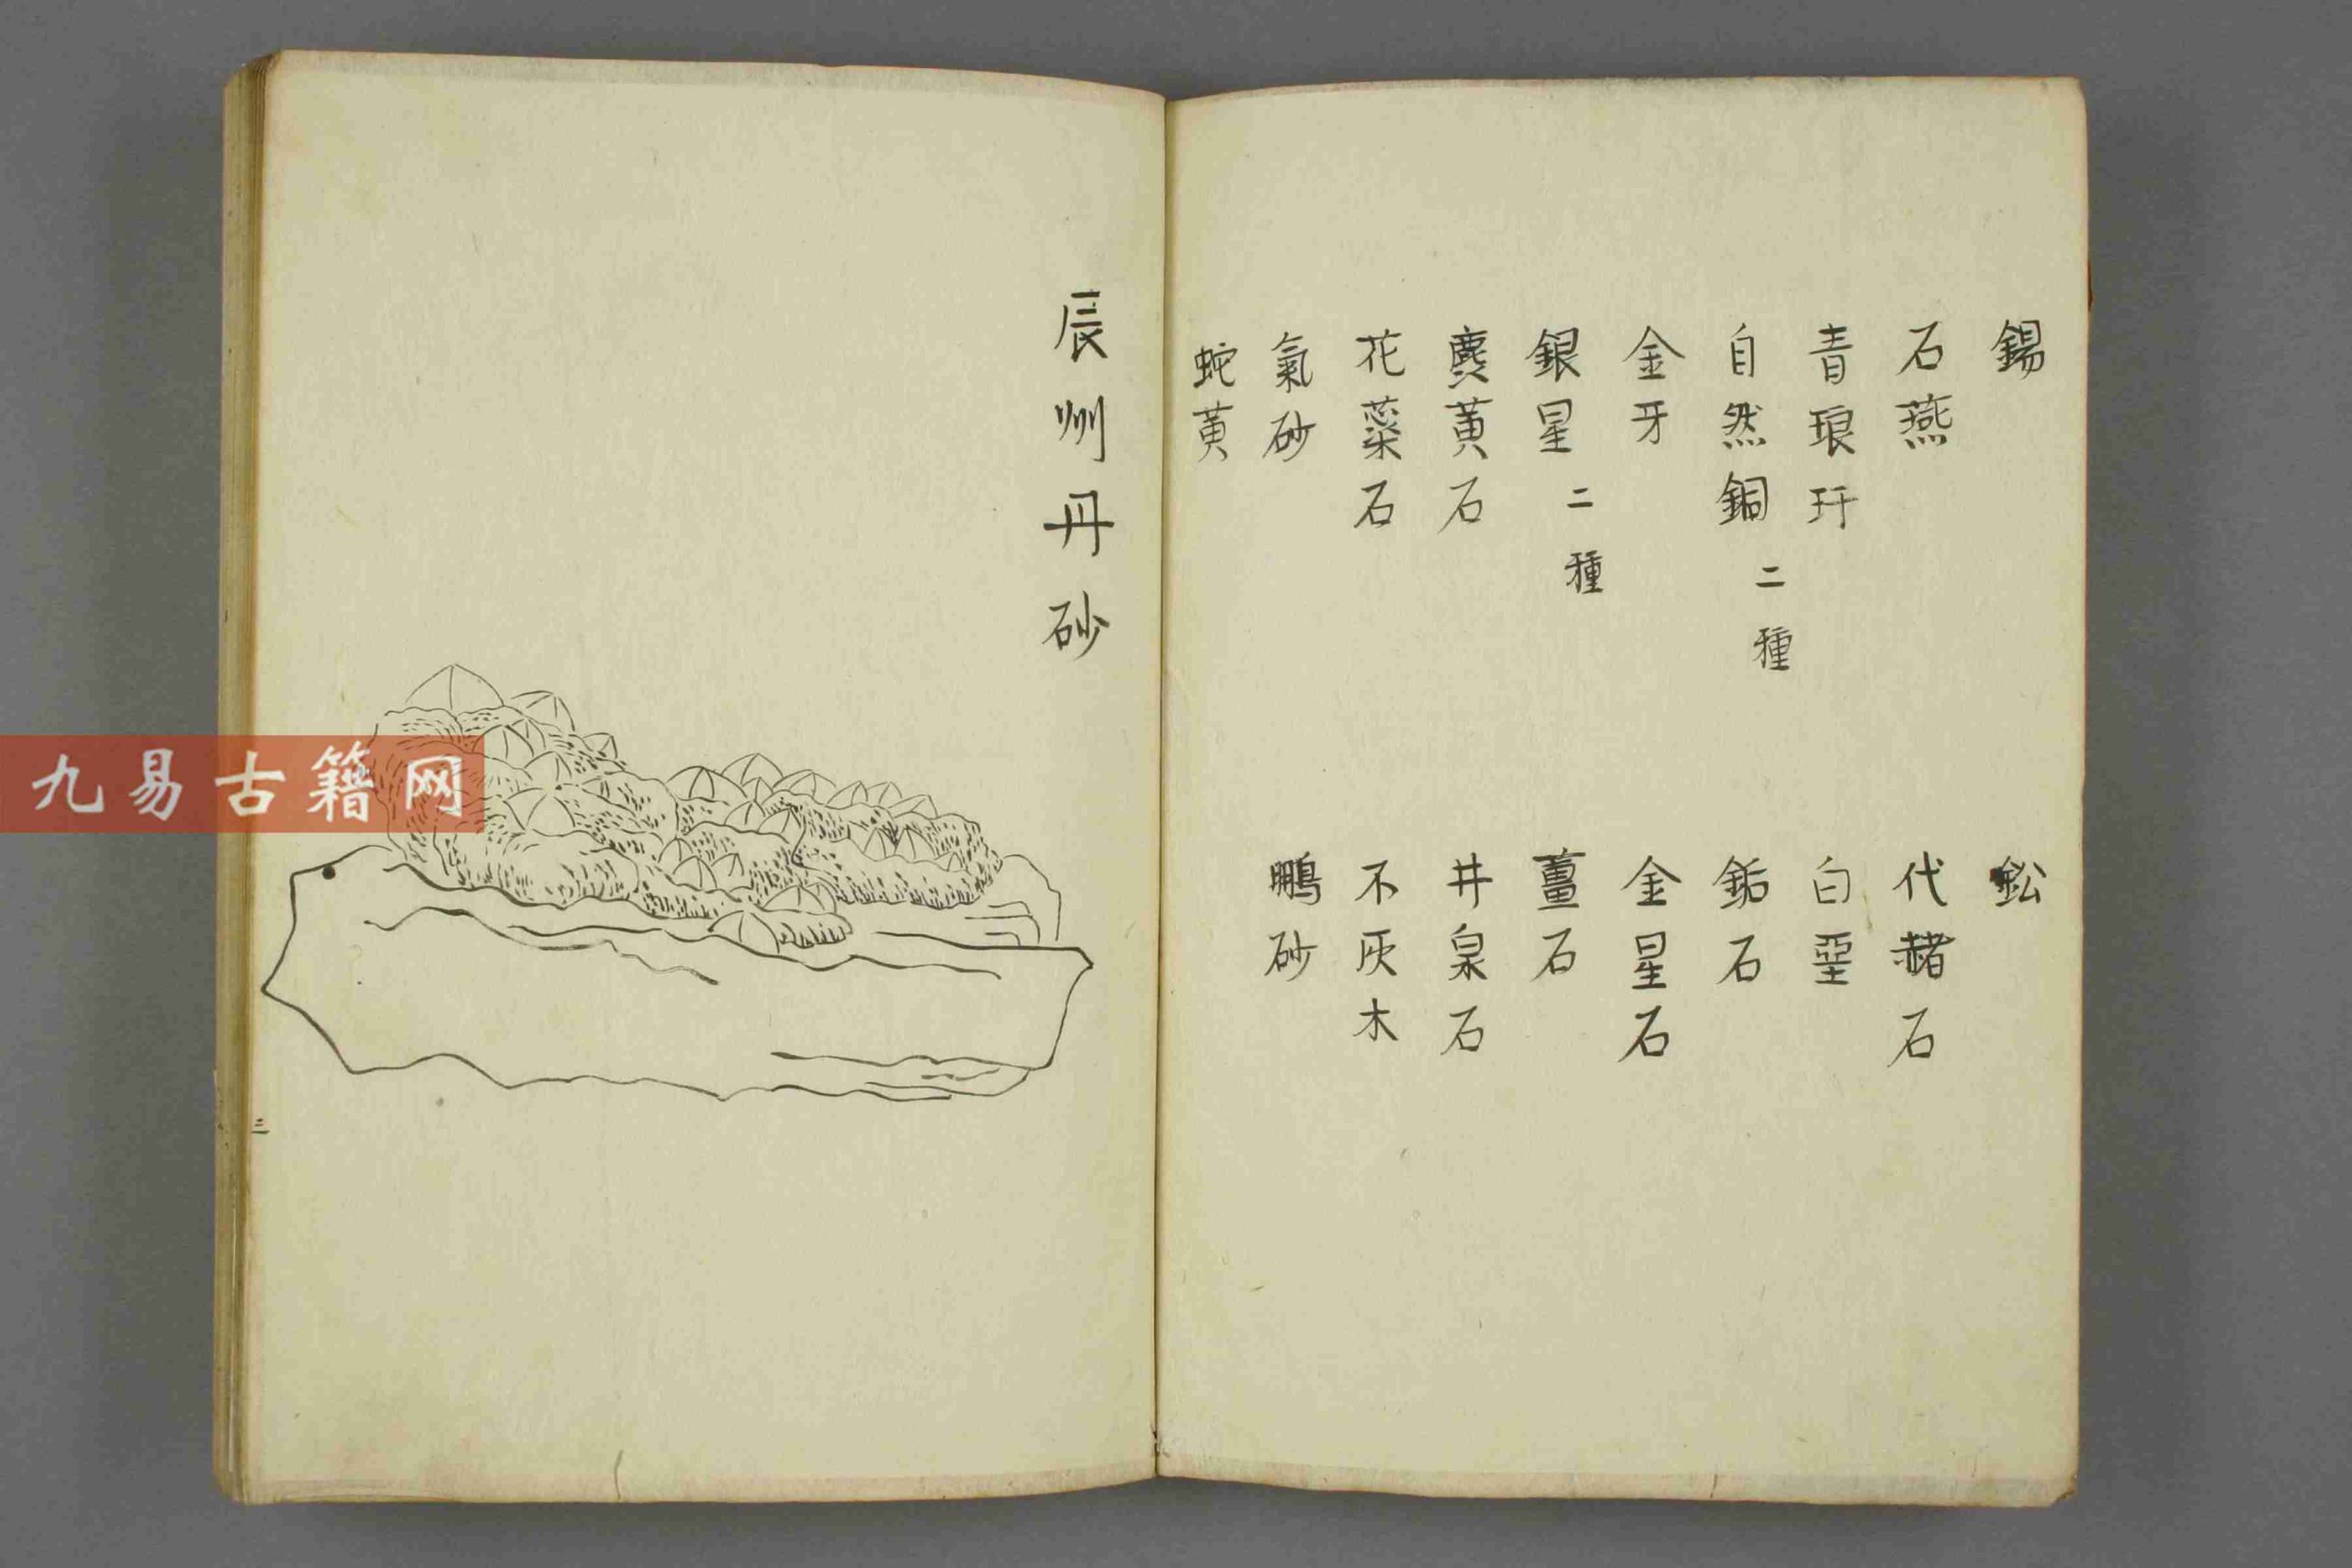 錫
鈆
石燕
代赭石
青琅玕
白堊
自然銅 二種
鉐石
金牙
金星石
銀星 二種
薑石
麩黃石
井泉石
花蘂石
不灰木
氣砂
鵬砂
蛇黃
辰州丹砂
三
九易古籍网